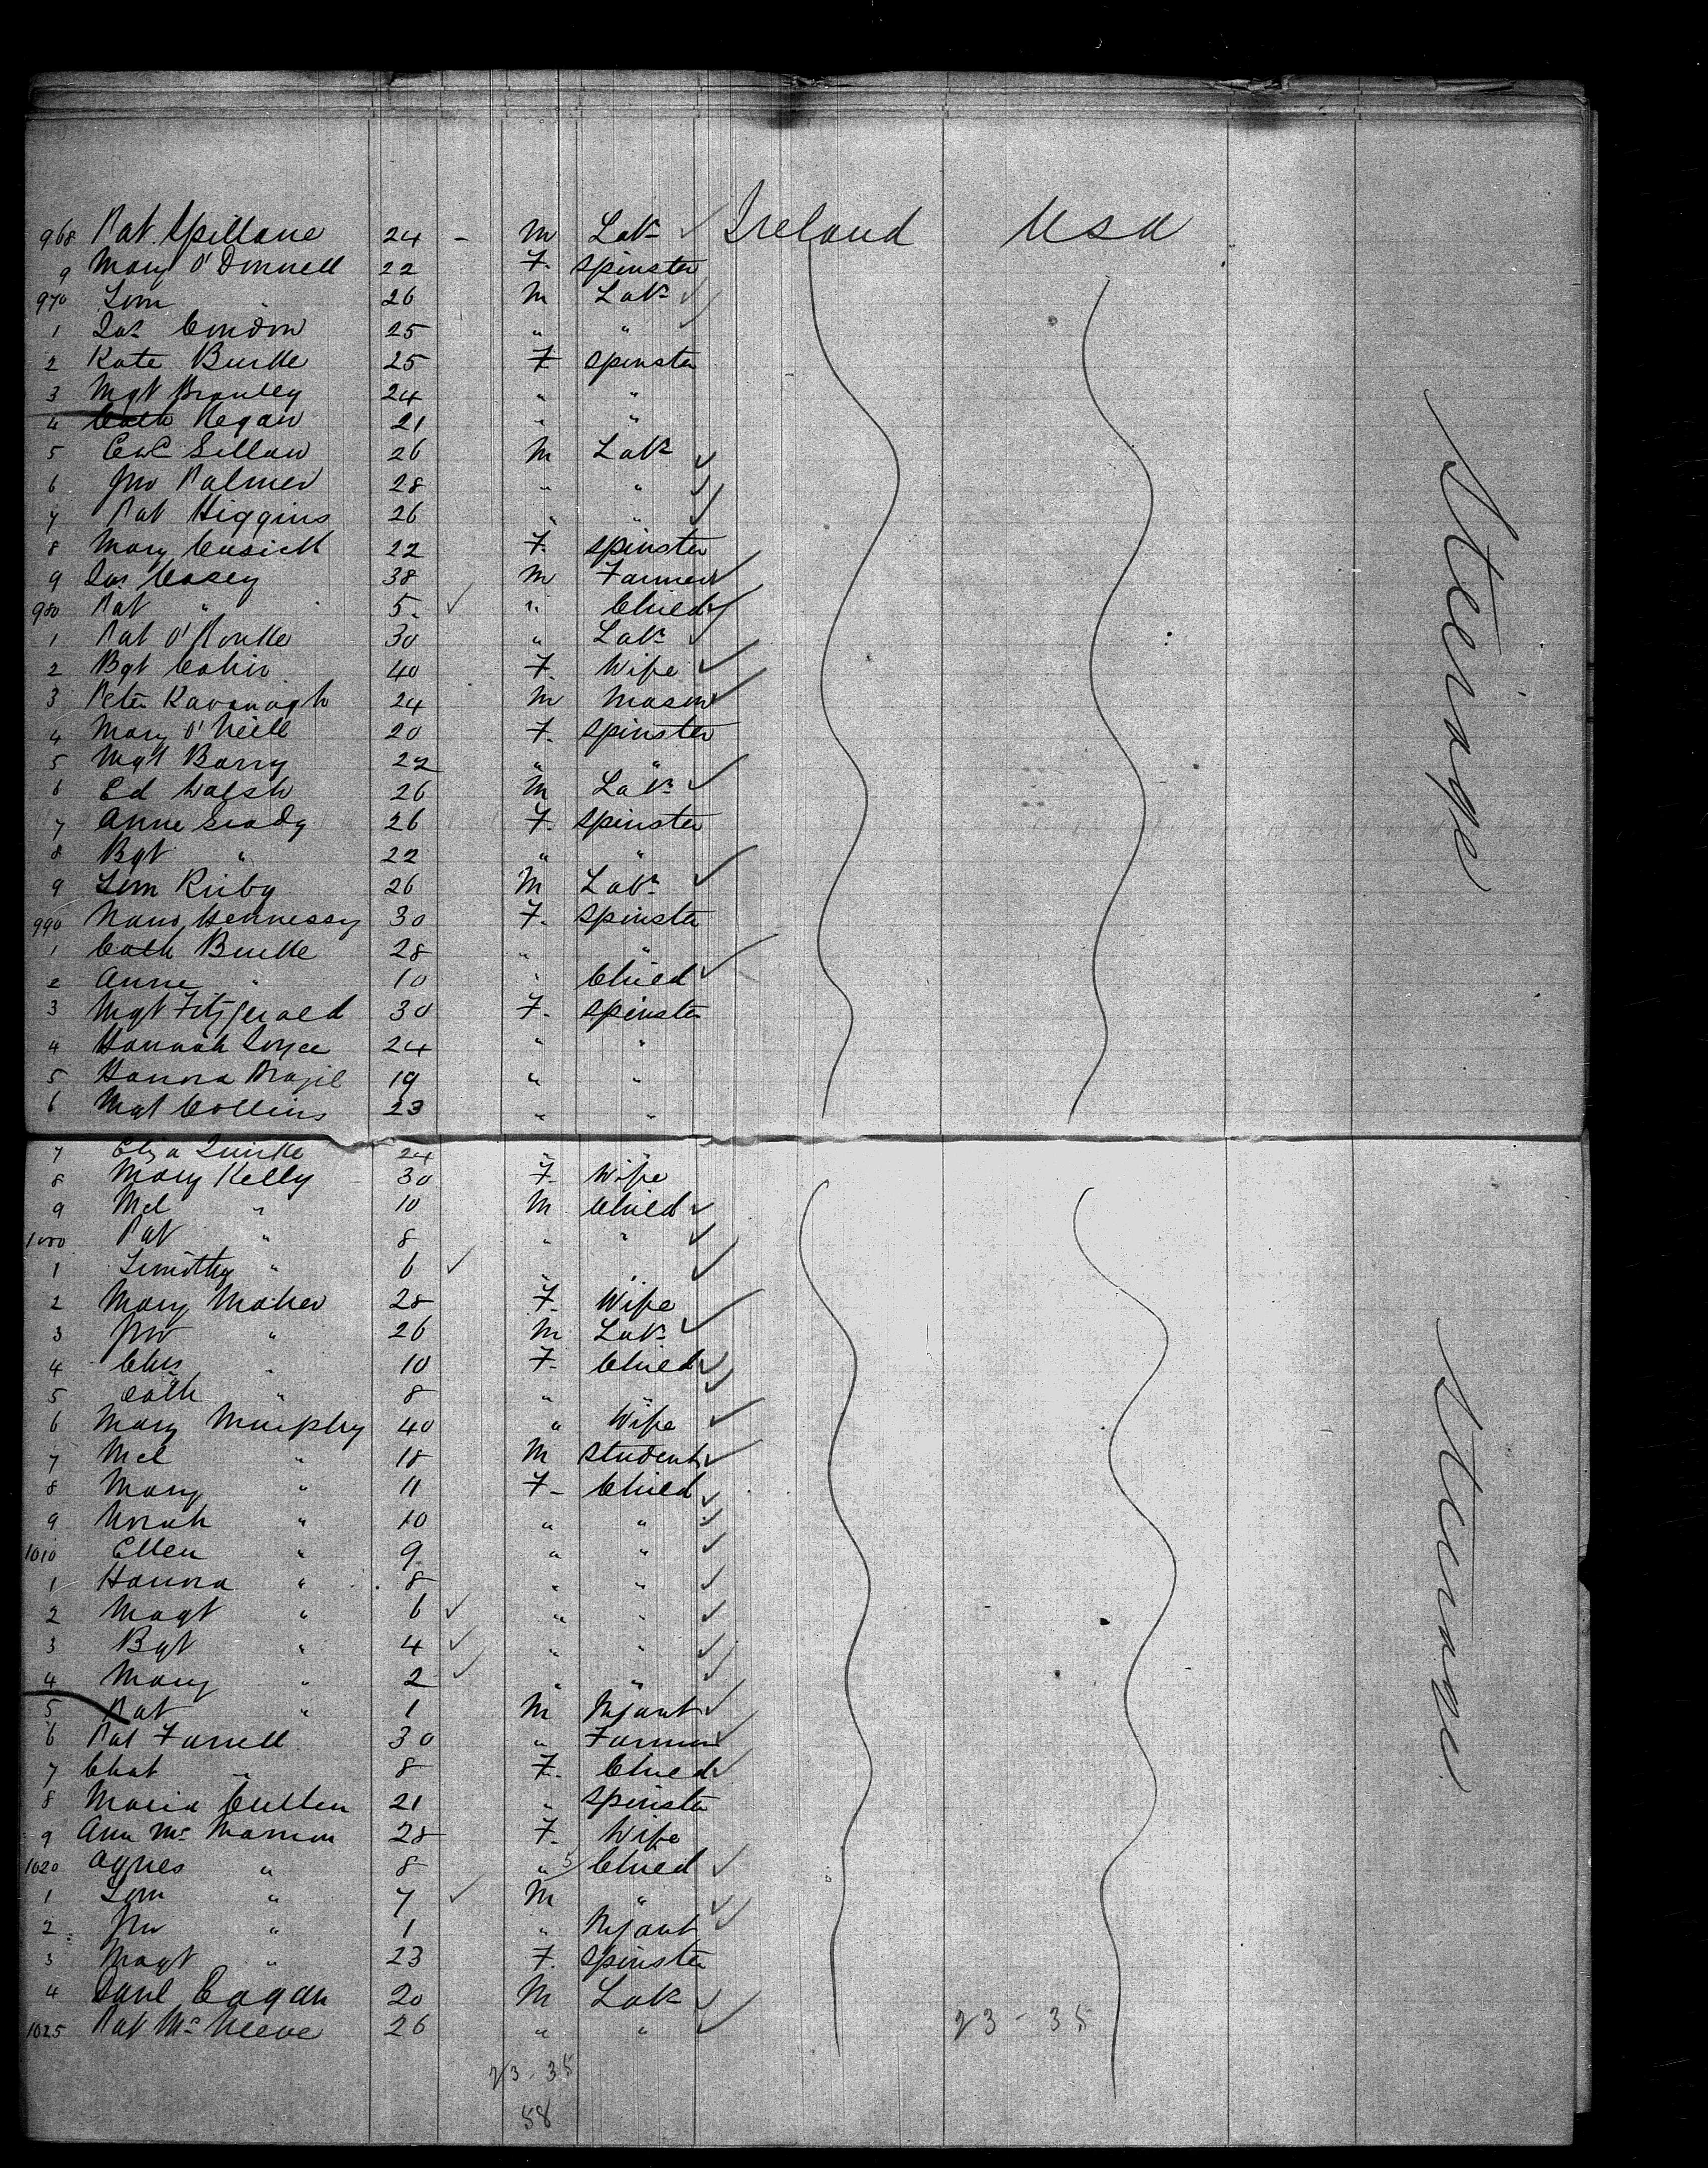 968 Pat Spillane 24 - M Labr Ireland USA
9 Mary O'Donnell 22 F. Spinster
970 Tom " 26 M Labr
1 Jas Condon 25 " "
2 Kate Burke 25 F Spinster
3 Mgt 24 " "
4 Cath Regan 21 " "
5 26 M Labr
6 Jno Palmer 28 " "
7 Pat Higgins 26 " "
8 Mary Cusick 22 F. Spinster
9 Jas Casey 38 M Farmer
980 Pat " 5 " Child
1 Pat O'Rourke 30 " Labr
2 Bgt 40 F. Wife
3 Peter Kavanagh 24 M Mason
4 Mary O'Neill 20 F. Spinster
5 Mgt Barry 22 " "
6 Ed Walsh 26 M Labr
7 Anne Grady 26 F. Spinster
8 Bgt " 22 " "
9 Tom Kirby 26 M Labr
990 Hennessy 30 F. Spinster
1 Cath Burke 28 " "
2 Anne " 10 " Child
3 Mgt Fitzgerald 30 F. Spinster
4 Hannah Joyce 24 " "
5 Hanora Brazil 19 " "
6 Mgt Collins 23 " "
7 Eliza Quirke 24 " "
8 Mary Kelly 30 F Wife
9 Mcl " 10 M Child
1000 Pat " 8 " "
1 Timothy " 6 " "
2 Mary Maher 28 F. Wife
3 Jno " 26 M Labr
4 " 10 F. Child
5 Cath " 8 " "
6 Mary Murphy 40 " Wife
7 Mcl " 18 M Student
8 Mary " 11 F- Child
9 Norah " 10 " "
1010 Ellen " 9 " "
1 Hanora " 8 " "
2 Magt " 6 " "
3 Bgt " 4 " "
4 Mary " 2 " "
5 Pat " 1 M Infant
6 Pat Farrell 30 " Farmer
7 " 8 F. Child
8 Maria Cullen 21 " Spinster
9 Ann Mc 28 F. Wife
1020 Agnes " 8 " 5 Child
1 Tom " 7 M "
2 Jno " 1 " Infant
3 Magt " 23 F. Spinster
4 Danl Eagan 20 M Labr
1025 Pat Mc 26 " "
23 - 35
23 - 35
58
Steerage
Steerage